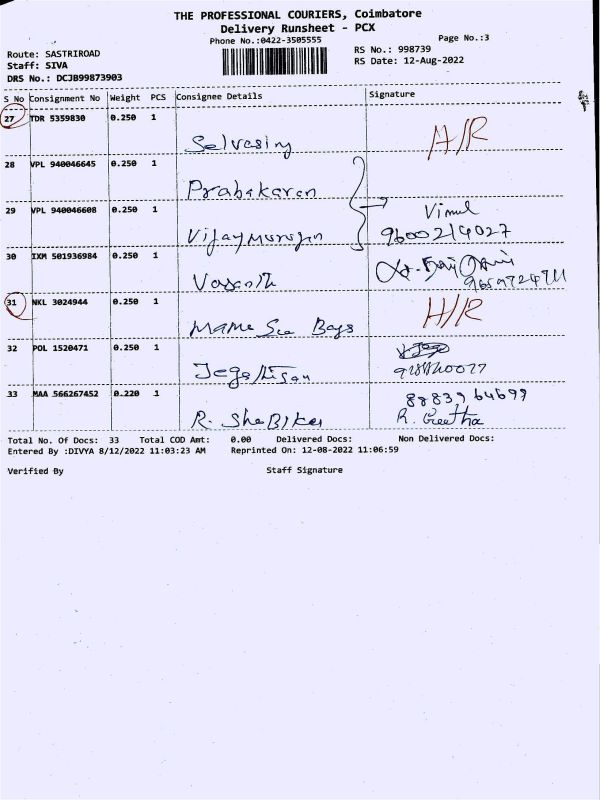 THE PROFESSIONAL COURIERS, Coimbatore
Delivery Runsheet - PCX
Phone No.:0422-3505555
Page No.:3
Route: SASTRIROAD
RS No.: 998739
Staff: SIVA
RS Date: 12-Aug-2022
DRS No.: DCJB99873903
S No Consignment No Weight PCS Consignee Details Signature
27 TDR 5359830 0.250 1
Selvasing H/R
28 VPL 940046645 0.250 1
Prabakaran
29 VPL 940046608 0.250 1 Vimul
Vijaymurugan 9600214027
30 IXM 501936984 0.250 1
Vasanth
31 NKL 3024944 0.250 1 H/R
Mame See Bags
32 POL 1520471 0.250 1
33 MAA 566267452 0.220 1 8883964699
R. Geetha
Total No. Of Docs: 33 Total COD Amt: 0.00 Delivered Docs: Non Delivered Docs:
Entered By :DIVYA 8/12/2022 11:03:23 AM Reprinted On: 12-08-2022 11:06:59
Verified By Staff Signature